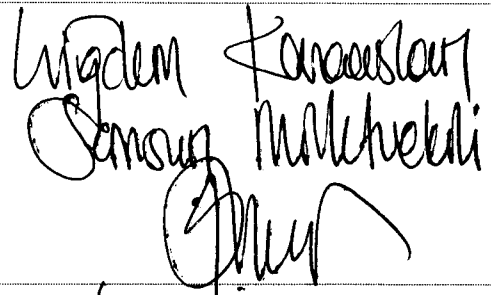 Çiğdem Karaaslan
Samsun Milletvekili